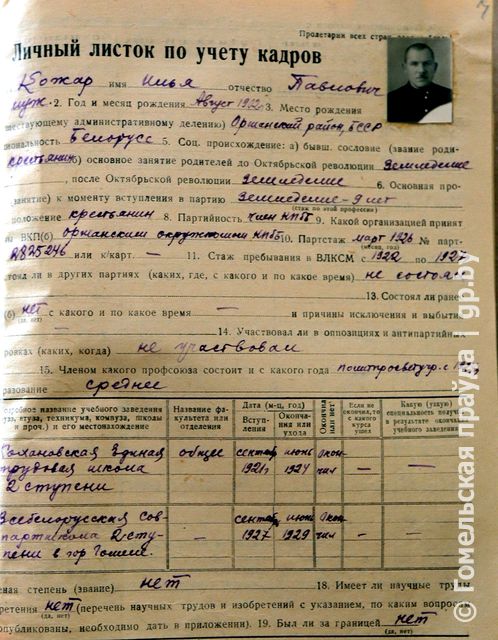 Пролетарии всех стран,
Личный листок по учету кадров
Кожар имя Илья отчество Павлович
муж. 2. Год и месяц рождения Август 1902 3. Место рождения
ществующему административному делению) Оршанский район, БССР
циональность Белорусс 5. Соц. происхождение: а) бывш. сословие (звание роди-
крестьянин б) основное занятие родителей до Октябрьской революции Земледелие
после Октябрьской революции земледелие 6. Основная про-
занятие) к моменту вступления в партию Земледелие - 9 лет
(стаж по этой профессии)
положение крестьянин 8. Партийность член КПб 9. Какой организацией принят
ВКП(б) оршанским окружкомом КПбБ 10. Партстаж март 1926 № парт-
(месяц, год)
или к/карт. — 11. Стаж пребывания в ВЛКСМ с 1922 по 1927
стоял ли в других партиях (каких, где, с какого и по какое время) не состоял
13. Состоял ли ране
(б) нет с какого и по какое время — и причины исключения и выбыти
(да, нет)
— 14. Участвовал ли в оппозициях и антипартийных
ровках (каких, когда) не участвовал
15. Членом какого профсоюза состоит и с какого года политпросветучр. с
разование среднее
название учебного заведения
вуза, втуза, техникума, комвуза, школы и проч.) и его местонахождение
Название факультета или отделения
Дата (м-ц, год)
Вступления
Окончания или ухода
Окончил или нет
Если не окончил, то с какого курса ушел
Какую (узкую) специальность получил в результате окончания учебного заведения
единая трудовая школа 2 ступени
общее
сентяб 1921 г
июнь 1924
Окончил
—
—
Всебелорусская совпартшкола 2 ступени в гор Гомеле.
—
сентяб 1927
июнь 1929
Окончил
—
—
еная степень (звание) нет 18. Имеет ли научные труды
ретения нет (перечень научных трудов и изобретений с указанием, по каким вопросам
(да, нет)
опубликованы, необходимо дать в приложении). 19. Был ли за границей нет
(да, нет)
© Гомельская праўда | gp.by